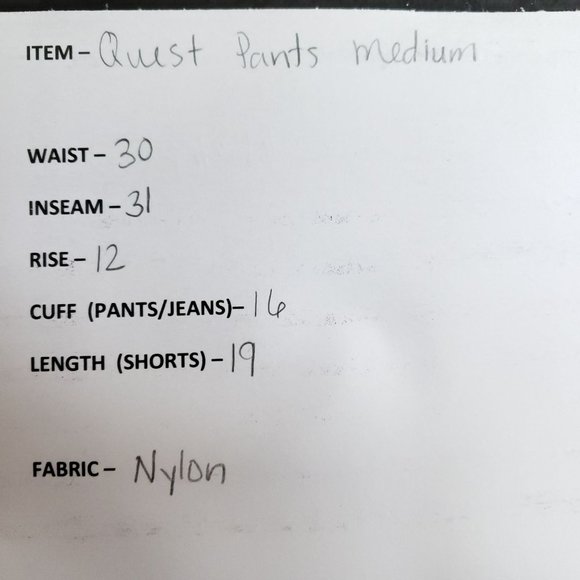 ITEM – Quest Pants medium
WAIST – 30
INSEAM – 31
RISE – 12
CUFF (PANTS/JEANS)– 16
LENGTH (SHORTS) – 19
FABRIC – Nylon